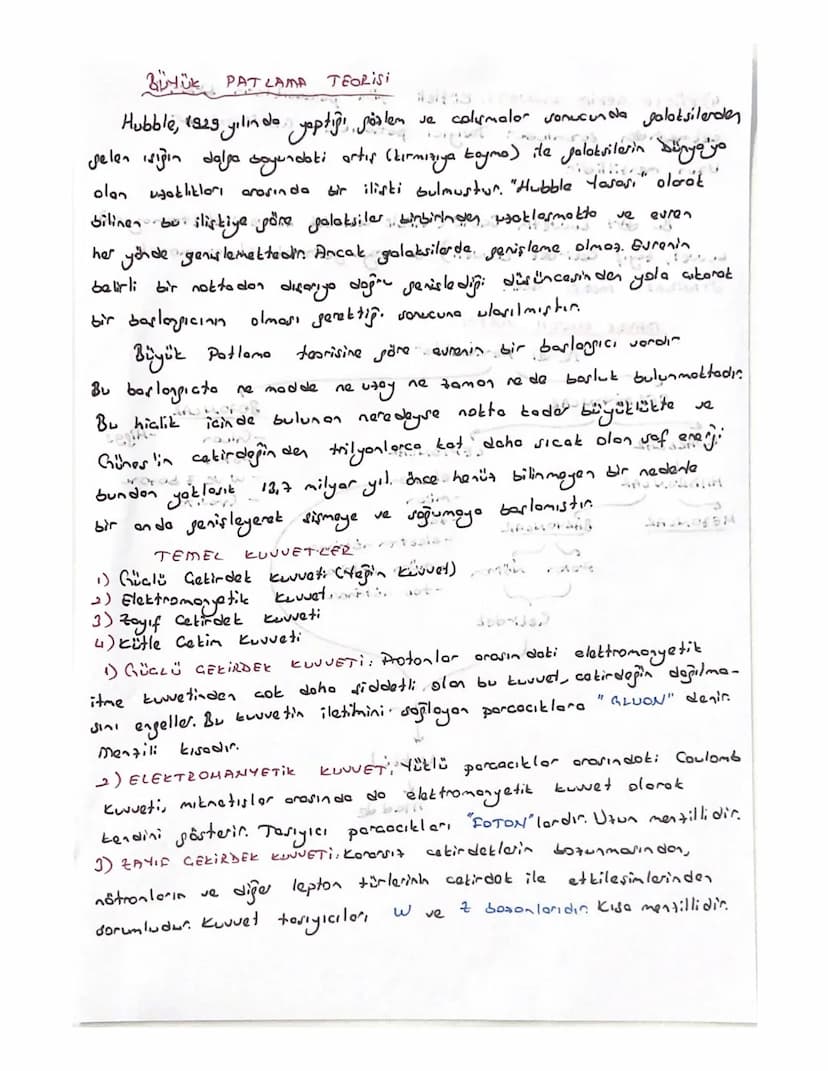 BÜYÜK PATLAMA TEORİSİ
Hubble, 1929 yılında yaptığı gözlem ve çalışmalar sonucunda galaksilerden
gelen ışığın dalga boyundaki artış (kırmızıya kayma) ile galaksilerin Dünya'ya
olan uzaklıkları arasında bir ilişki bulmuştur. "Hubble Yasası" olarak
bilinen bu ilişkiye göre galaksiler birbirinden uzaklaşmakta ve evren
her yönde genişlemektedir. Ancak galaksilerde genişleme olmaz. Evrenin
belirli bir noktadan dışarıya doğru genişlediği düşüncesinden yola çıkarak
bir başlangıcının olması gerektiği sonucuna ulaşılmıştır.
Büyük Patlama teorisine göre evrenin bir başlangıcı vardır
Bu başlangıçta ne madde ne uzay ne zaman ne de boşluk bulunmaktadır.
Bu hiçlik içinde bulunan neredeyse nokta kadar büyüklükte ve
Güneş'in çekirdeğinden trilyonlarca kat daha sıcak olan saf enerji
bundan yaklaşık 13,7 milyar yıl önce henüz bilinmeyen bir nedenle
bir anda genişleyerek şişmeye ve soğumaya başlamıştır.
TEMEL KUVVETLER
1) Güçlü Çekirdek kuvveti (Yeğin Kuvvet)
2) Elektromanyetik kuvvet
3) Zayıf Çekirdek Kuvveti
4) Kütle Çekim Kuvveti
1) GÜÇLÜ ÇEKİRDEK KUVVETİ: Protonlar arasındaki elektromanyetik
itme kuvvetinden çok daha şiddetli olan bu kuvvet, çekirdeğin dağılma-
sını engeller. Bu kuvvetin iletimini sağlayan parçacıklara "GLUON" denir.
Menzili kısadır.
2) ELEKTROMANYETİK KUVVET: Yüklü parçacıklar arasındaki Coulomb
kuvveti, mıknatıslar arasında da elektromanyetik kuvvet olarak
kendini gösterir. Taşıyıcı parçacıkları "FOTON"lardır. Uzun menzillidir.
3) ZAYIF ÇEKİRDEK KUVVETİ: Kararsız çekirdeklerin bozunmasından,
nötronların ve diğer lepton türlerinin çekirdek ile etkileşimlerinden
sorumludur. Kuvvet taşıyıcıları W ve Z bozonlarıdır. Kısa menzillidir.